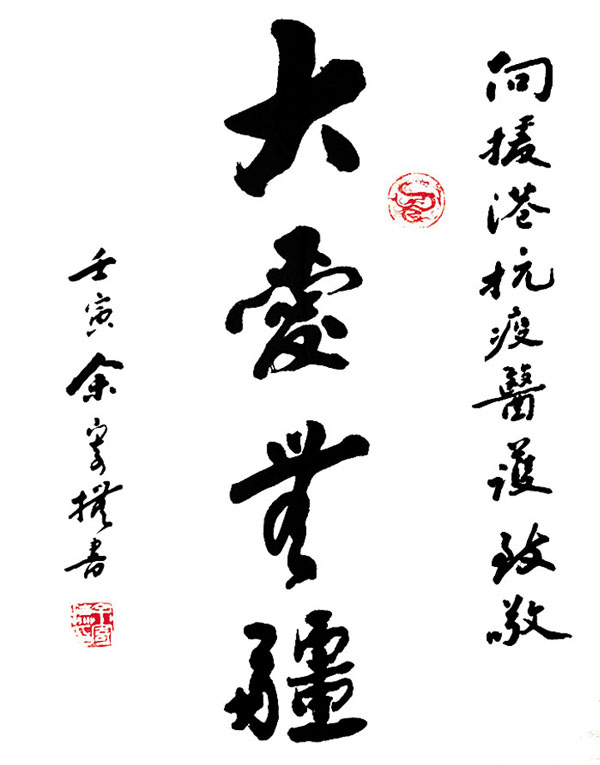 向援港抗疫醫護致敬
大愛無疆
壬寅 余寄撫書